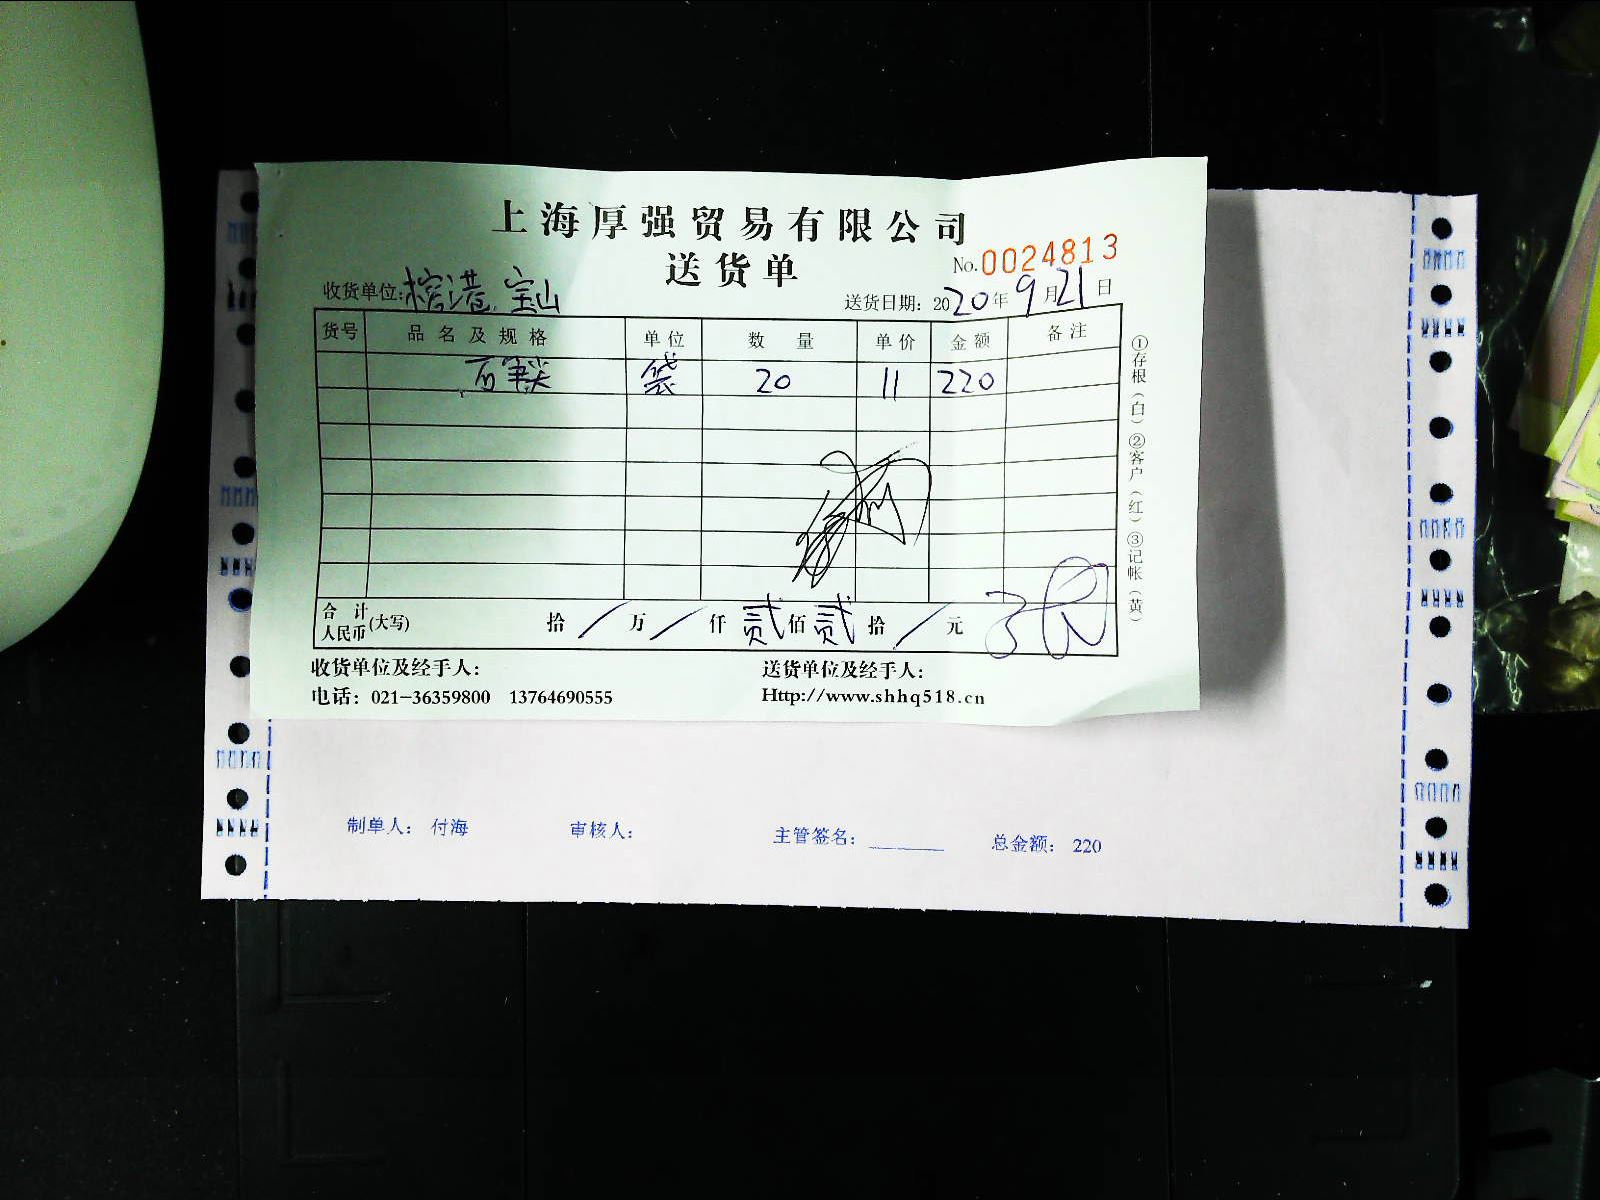 上海厚强贸易有限公司
送货单
No.0024813
收货单位:榕港 宝山
送货日期: 2020年9月21日
货号 品名及规格 单位 数量 单价 金额 备注
袋 20 11 220
合计人民币(大写) 拾 / 万 / 仟 贰 佰 贰 拾 / 元
收货单位及经手人: 送货单位及经手人:
电话: 021-36359800 13764690555 Http://www.shhq518.cn
①存根(白)②客户(红)③记帐(黄)
制单人: 付海 审核人: 主管签名: ______ 总金额: 220